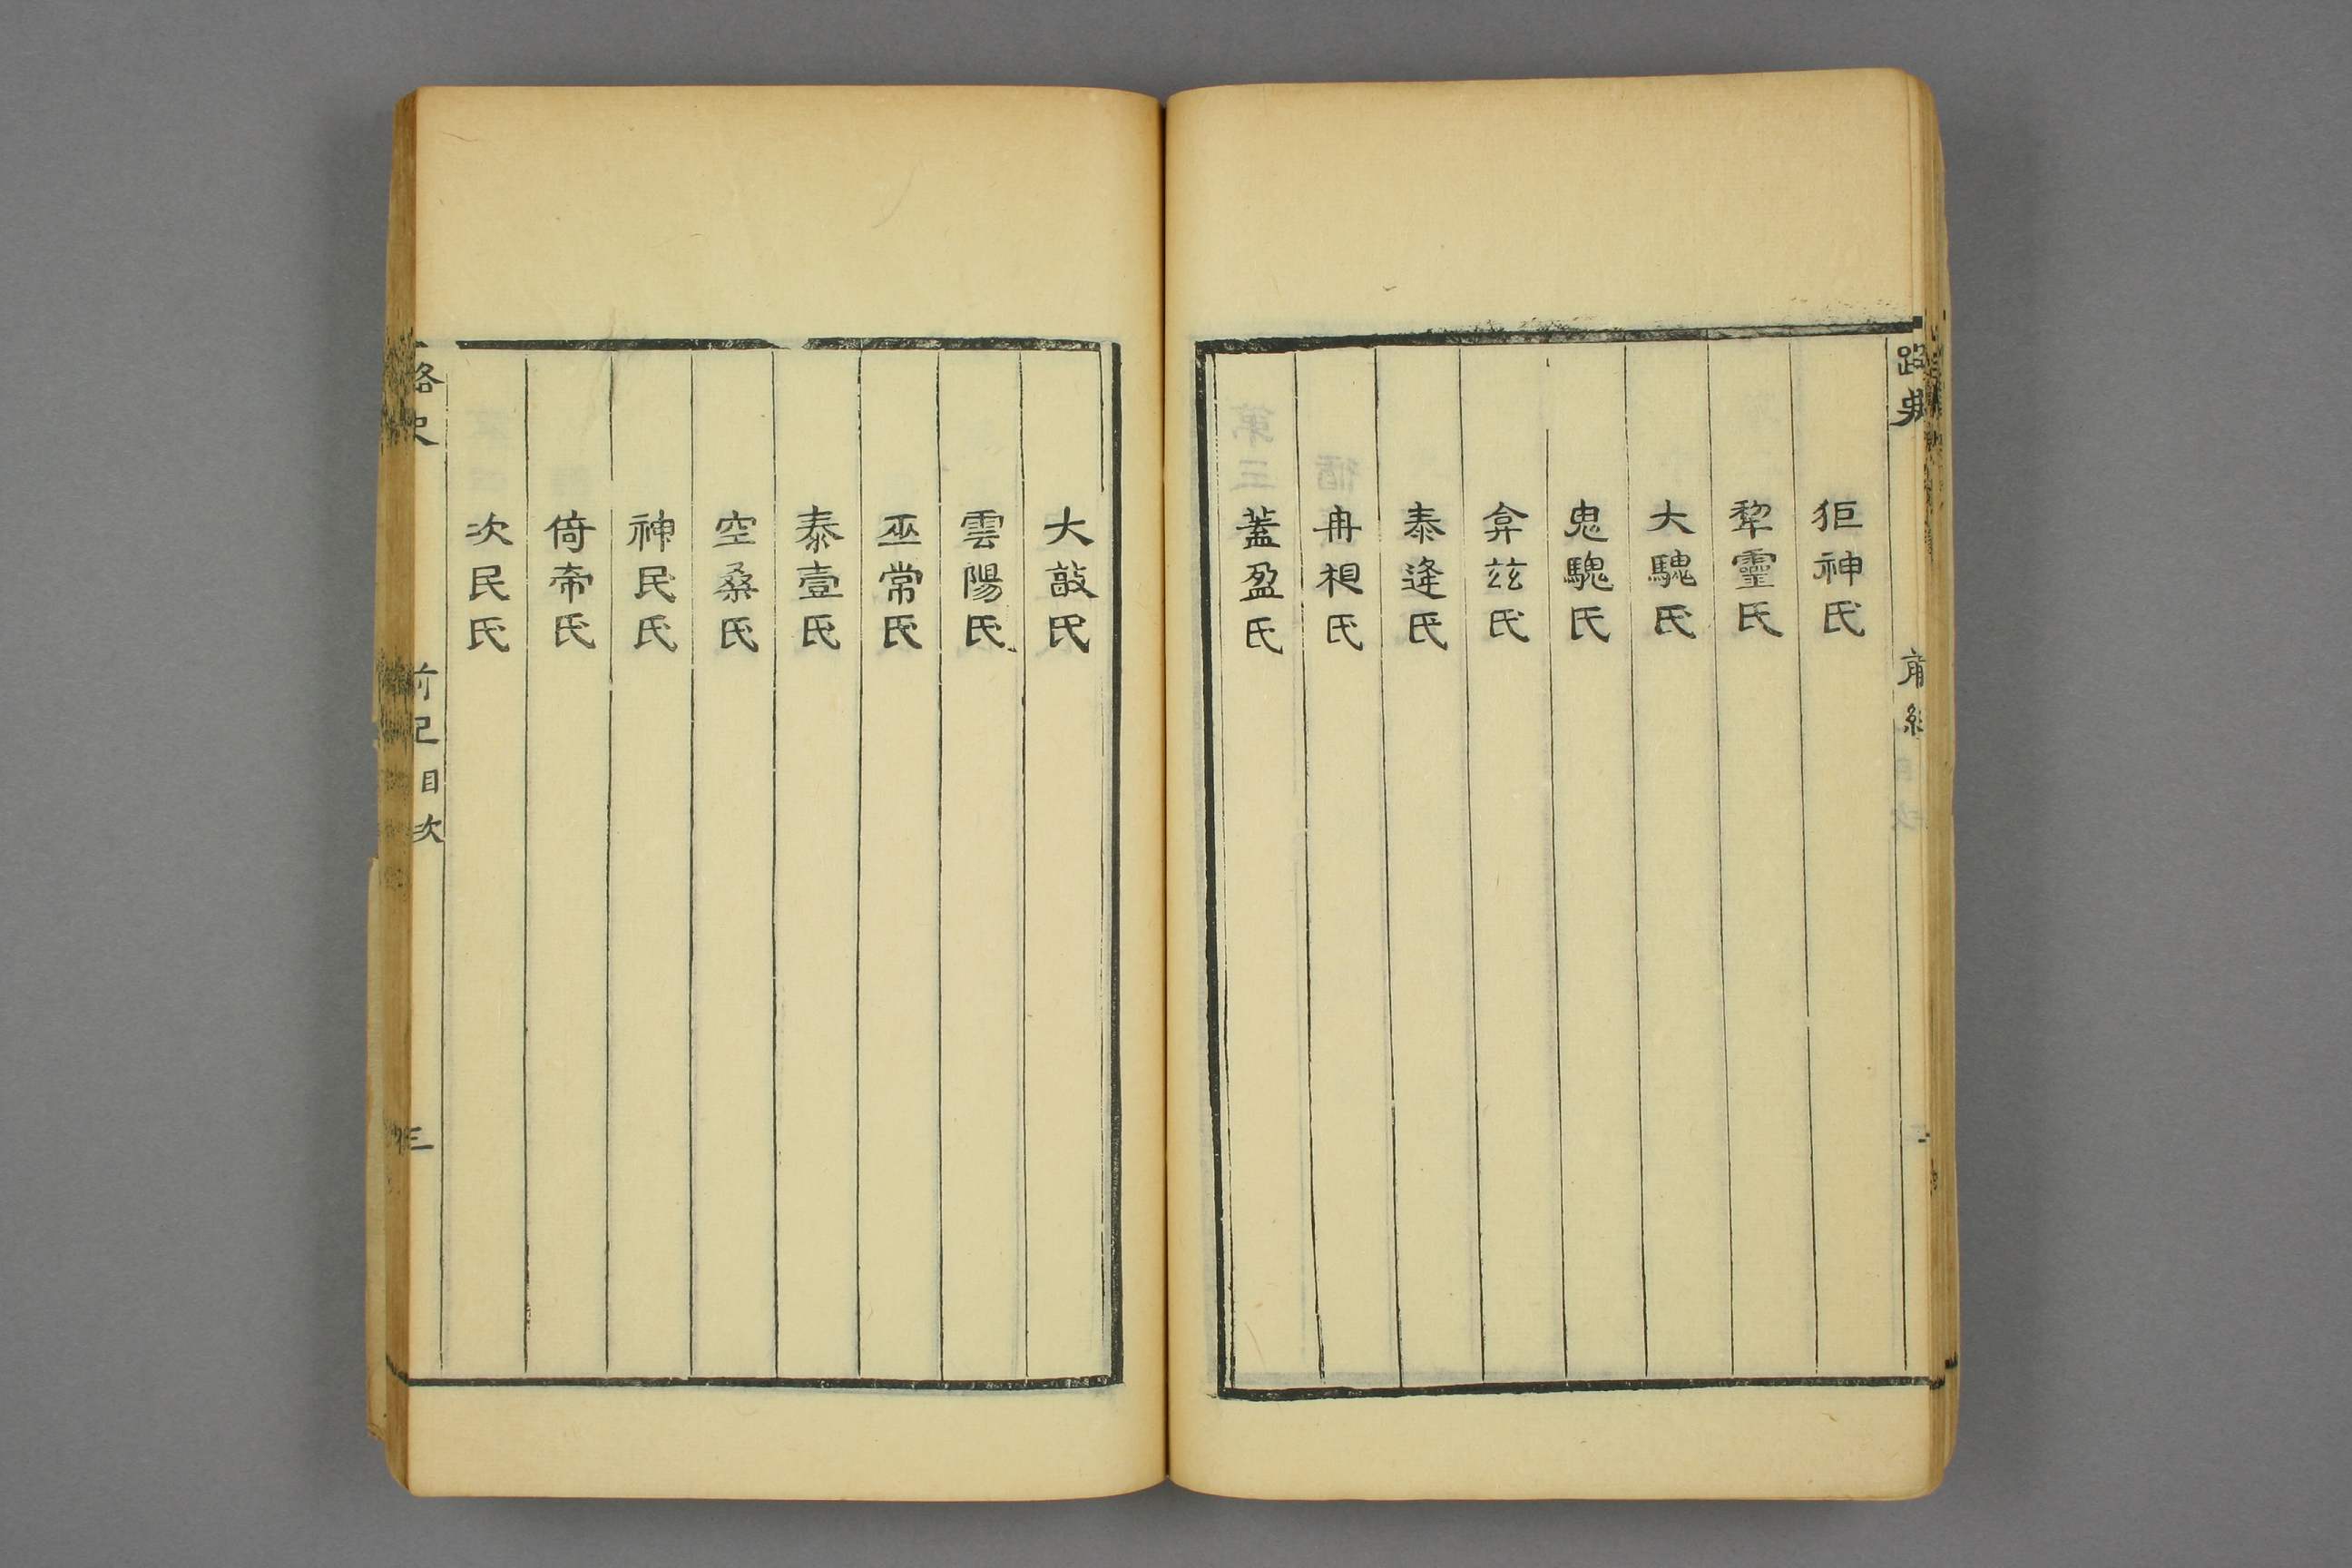 路史
前紀
狟神氏
犂靈氏
大騩氏
鬼騩氏
弇茲氏
泰逢氏
冉相氏
蓋盈氏
大敦氏
雲陽氏
巫常氏
泰壹氏
空桑氏
神民氏
倚帝氏
次民氏
路史
前紀目次
三